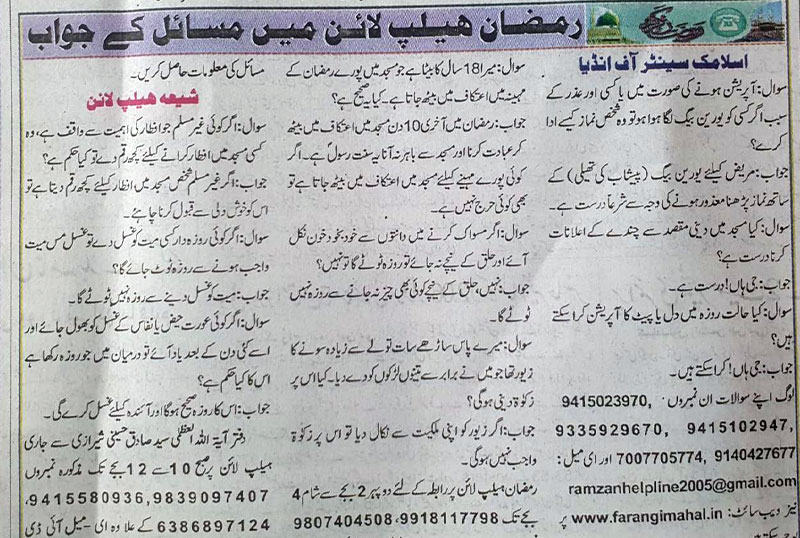 رمضان ہیلپ لائن میں مسائل کے جواب
اسلامک سینٹر آف انڈیا
سوال: آپریشن ہونے کی صورت میں یا کسی اور عذر کے
سبب اگر کسی کو یورین بیگ لگا ہوا ہو تو وہ شخص نماز کیسے ادا
کرے؟
جواب: مریض کیلئے یورین بیگ (پیشاب کی تھیلی) کے
ساتھ نماز پڑھنا معذور ہونے کی وجہ سے شرعاً درست ہے۔
سوال: کیا مسجد میں دینی مقصد سے چندے کے اعلانات
کرنا درست ہے؟
جواب: جی ہاں! درست ہے۔
سوال: کیا حالت روزہ میں دل یا پیٹ کا آپریشن کرا سکتے
ہیں؟
جواب: جی ہاں! کرا سکتے ہیں۔
لوگ اپنے سوالات ان نمبروں 9415023970,
9335929670, 9415102947,
7007705774, 9140427677 اور ای میل:
ramzanhelpline2005@gmail.com
نیز ویب سائٹ: www.farangimahal.in پر
سوال: میرا 18 سال کا بیٹا ہے جو مسجد میں پورے رمضان کے
مہینہ میں اعتکاف میں بیٹھ جاتا ہے۔ کیا یہ صحیح ہے؟
جواب: رمضان میں آخری 10 دن مسجد میں اعتکاف میں بیٹھ
کر عبادت کرنا اور مسجد سے باہر نہ آنا یہ سنت رسولؐ ہے۔ اگر
کوئی پورے مہینے کیلئے مسجد میں اعتکاف میں بیٹھ جاتا ہے تو
بھی کوئی حرج نہیں ہے۔
سوال: اگر مسواک کرنے میں دانتوں سے خود بخود خون نکل
آئے اور حلق کے نیچے نہ جائے تو روزہ ٹوٹے گا تو نہیں؟
جواب: نہیں، حلق کے نیچے کوئی بھی چیز نہ جانے سے روزہ نہیں
ٹوٹے گا۔
سوال: میرے پاس ساڑھے سات تولے سے زیادہ سونے کا
زیور تھا جو میں نے برابر سے تینوں لڑکوں کو دے دیا۔ کیا اس پر
زکوٰۃ دینی ہوگی؟
جواب: اگر زیور کو اپنی ملکیت سے نکال دیا تو اس پر زکوٰۃ
واجب نہیں ہوگی۔
رمضان ہیلپ لائن پر رابطہ کے لئے دوپہر 2 بجے سے شام 4
بجے تک 9918117798، 9807404508
مسائل کی معلومات حاصل کریں۔
شیعہ ہیلپ لائن
سوال: اگر کوئی غیر مسلم جو افطار کی اہمیت سے واقف ہے، وہ
کسی مسجد میں افطار کرانے کیلئے کچھ رقم دے تو کیا حکم ہے؟
جواب: اگر غیر مسلم شخص مسجد میں افطار کیلئے کچھ رقم دینا ہے تو
اس کو خوش دلی سے قبول کرنا چاہئے۔
سوال: اگر کوئی روزہ دار کسی میت کو غسل دے تو غسل مس میت
واجب ہونے سے روزہ ٹوٹ جائے گا؟
جواب: میت کو غسل دینے سے روزہ نہیں ٹوٹے گا۔
سوال: اگر کوئی عورت حیض یا نفاس کے غسل کو بھول جائے اور
اسے کئی دن کے بعد یاد آئے تو درمیان میں جو روزہ رکھا ہے
اس کا کیا حکم ہے؟
جواب: اس کا روزہ صحیح ہوگا اور آئندہ کیلئے غسل کرے گی۔
دفتر آیۃ اللہ العظمیٰ سید صادق حسینی شیرازی سے جاری
ہیلپ لائن پر صبح 10 سے 12 بجے تک مذکورہ نمبروں
9415580936, 9839097407،
6386897124 کے علاوہ ای-میل آئی ڈی